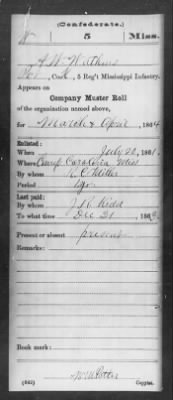 (Confederate.)
W 5 Miss.
A. W. Watkins
Co. 5 Reg't Mississippi Infantry.
Appears on
Company Muster Roll
of the organization named above,
for March & April, 1864
Enlisted:
When July 20, 1861.
Where Camp Carolina Miss
By whom
Period 1 yr.
Last paid:
By whom J. R. Kidd
To what time Dec 31, 1863.
Present or absent present
Remarks:
Book mark:
(642) Copyist.